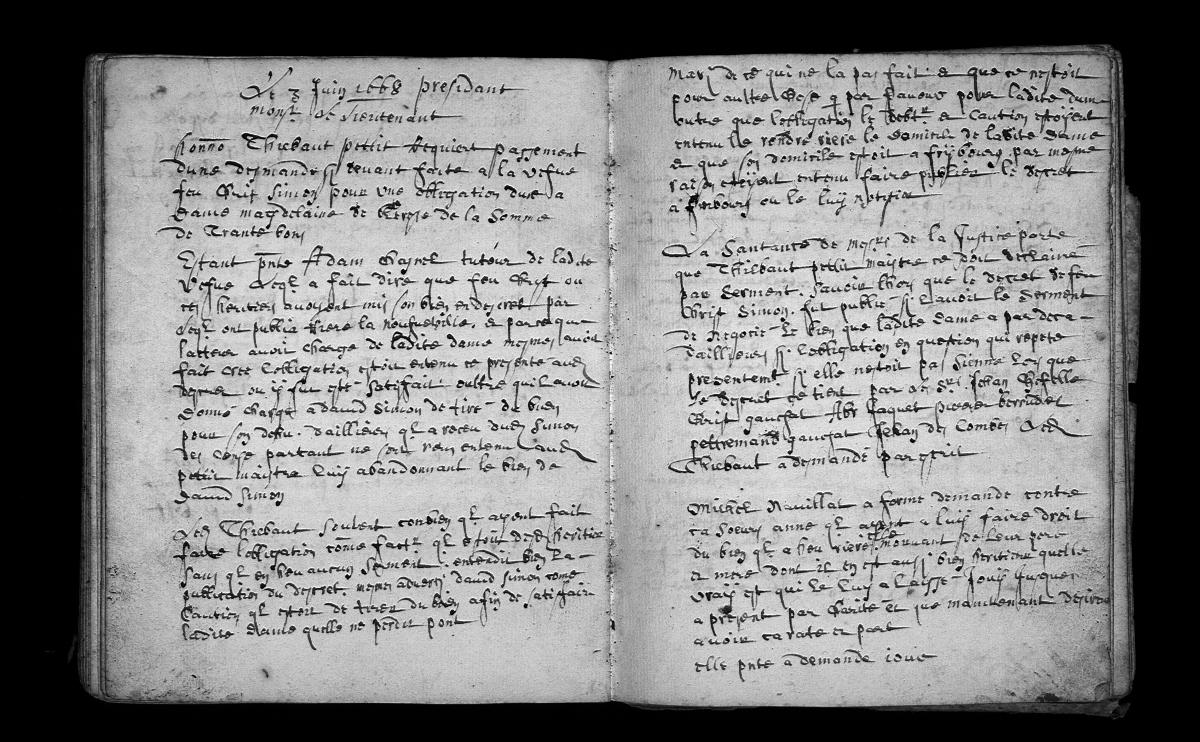 Le 3 Juin 1668 presidant
monsr le Lieutenant
honno Thiebaut pettit Requiert passement
dune desmande devant faite a la vefve
feu Crist Simon pour une obligation due a
Dame magdelaine de de la Somme
de Trante bons
Estant pnte Adam tuteur de ladite
vefve Leql a fait dire que feu Crist ou
ces heritier avoyent mis son bien en descret par
Leql ont publié riere la neufveville. & parce que
lacteur avoit charge de ladite dame mesmes lavoit
fait cete lobligation estoit entenu ce presente aud
descret ou il fut esté satisfait oultre quil avoit
donné charge a david Simon de tire du bien
pour son dehu. dallieur ql a receu dud Simon
des partant ne soit rien entenu aud
pettit maistre luy abandonnant le bien de
david Simon
Led Thiebaut soutent combien ql ayent fait
faire lobligation come factr ql estoit desd heritier
sans ql en heu aucun entendit bien la
publication du descret. mesmes adverty david Simon come
Caution ql estoit de tirer du bien afin de satisfair
ladite dame quelle ne perdit pont
mari de ce qui ne la pas fait & que ce nestoit
pour aultre chose q par faveur pour ladite dame
outre que lobligation le debtr & caution estoyent
entenu le rendre riere le domicile de ladite dame
& que son domicile estoit a frybourg par mesme
raison estoyent entenu faire publier le descret
a fribourg ou le luy notifier
La Santance de mesrs de la Justice porte
que Thiebaut pettit maistre ce doit desclaire
par serment. savoir lhors que le descret de feu
Crist Simon. fut publié sil avoit le serment
de Negocié le bien que ladite dame a par deca
dallieur si lobligation en question qui repete
presentemt si elle nestoit pas sienne Lors que
le descret se tient. par les srs Jehan
Crist gauchat Abr Jaquet
pettremand gauchat Jehan des Combes Led
Thiebaut a demandé par escrit
Michel Nauillat a formé demande contre
ca Soeurs anne ql ayent a luy faire droit
du bien ql a heu riere elle mouvant de leur pere
& mere dont il en est aussi bien heritier quelle
vray est qui le luy a laissé Jouy Jusques
a present par Carité et que maintenant desire
avoir ca rate et part
elle pnte a demandé iour